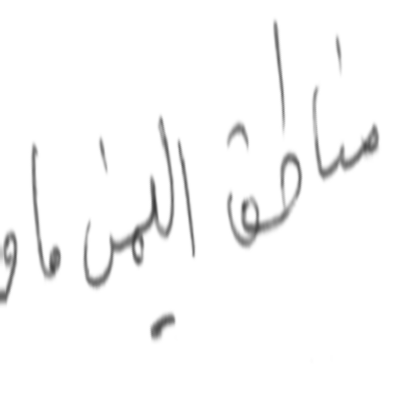 مناطق اليمن ما و